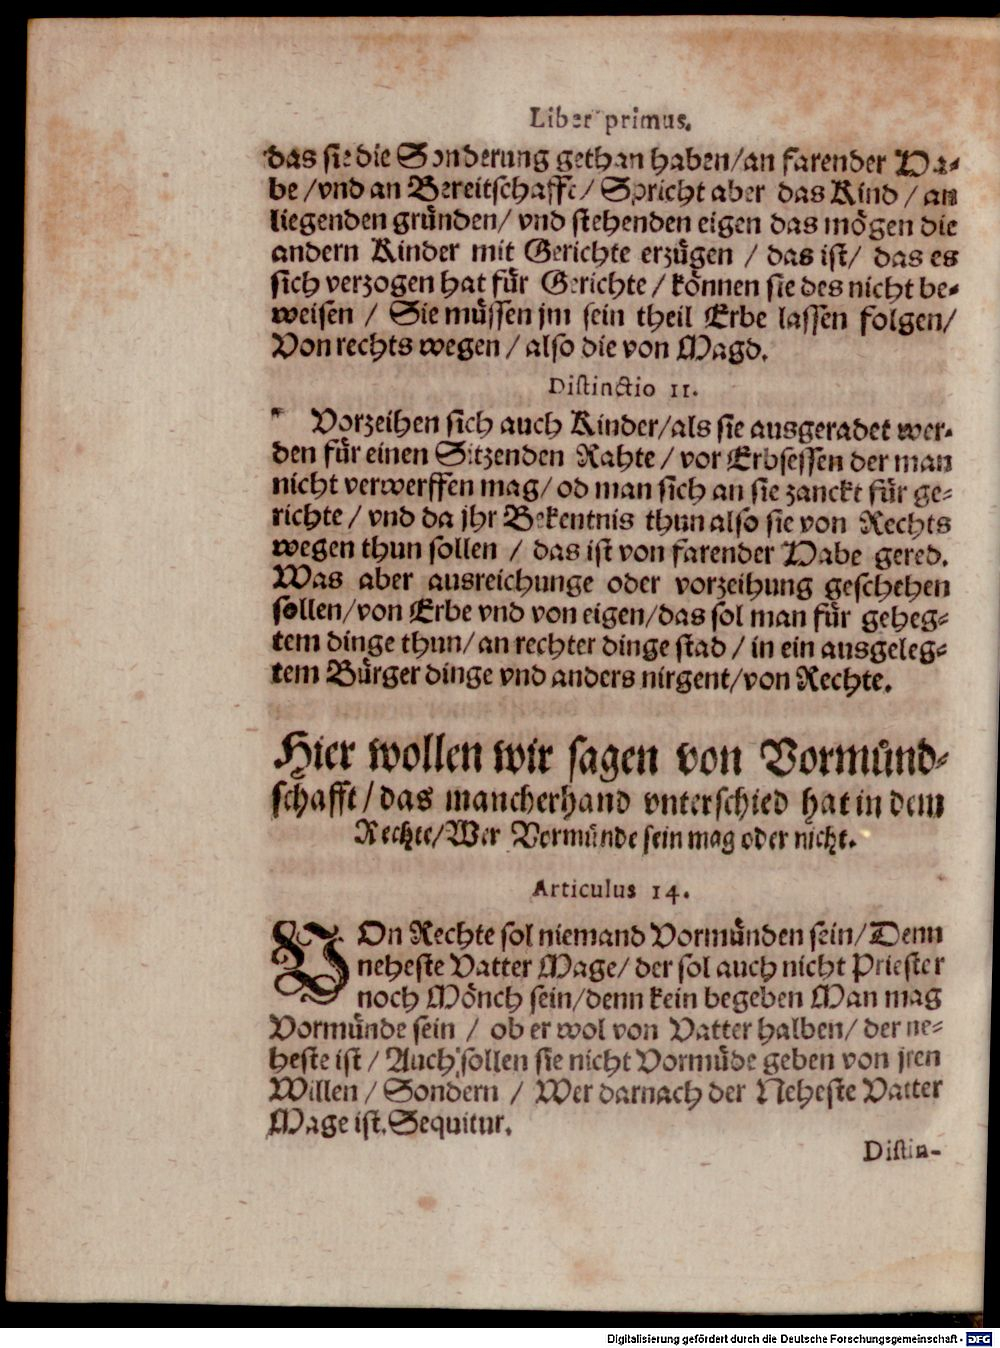 Liber primus.
das sie die Sonderung gethan haben/an farender Ha-
be /vnd an Bereitschafft/ Spricht aber das Kind / an
liegenden gründen/ vnd stehenden eigen das mögen die
andern Kinder mit Gerichte erzügen / das ist/ das es
sich verzogen hat für Gerichte / können sie des nicht be-
weisen / Sie müssen jm sein theil Erbe lassen folgen/
Von rechts wegen / also die von Magd.
Distinctio 11.
Vorzeihen sich auch Kinder/als sie ausgeradet wer-
den für einen Sitzenden Rahte / vor Erbsessen der man
nicht verwerffen mag/ od man sich an sie zanckt für ge-
richte / vnd da jhr Bekentnis thun also sie von Rechts
wegen thun sollen / das ist von farender Habe gered.
Was aber ausreichunge oder vorzeihung geschehen
sollen/von Erbe vnd von eigen/das sol man für geheg-
tem dinge thun/an rechter dinge stad / in ein ausgeleg-
tem Bürger dinge vnd anders nirgent/von Rechte.
Hier wollen wir sagen von Vormünd-
schafft/das mancherhand vnterschied hat in dem
Rechte/Wer Vormünde sein mag oder nicht.
Articulus 14.
VOn Rechte sol niemand Vormünden sein/Denn
neheste Vatter Mage/ der sol auch nicht Priester
noch Mönch sein/denn kein begeben Man mag
Vormünde sein / ob er wol von Vatter halben/ der ne-
heste ist / Auch sollen sie nicht Vormüde geben von jren
Willen / Sondern / Wer darnach der Neheste Vatter
Mage ist. Sequitur.
Distin-
Digitalisierung gefördert durch die Deutsche Forschungsgemeinschaft - DFG